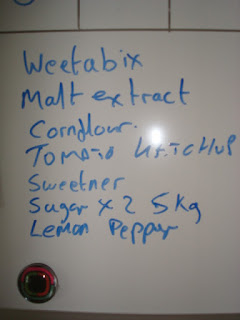 Weetabix
Malt extract
Cornflour.
TOMATO KETCHUP
Sweetner
Sugar x 2 5kg
Lemon Pepper